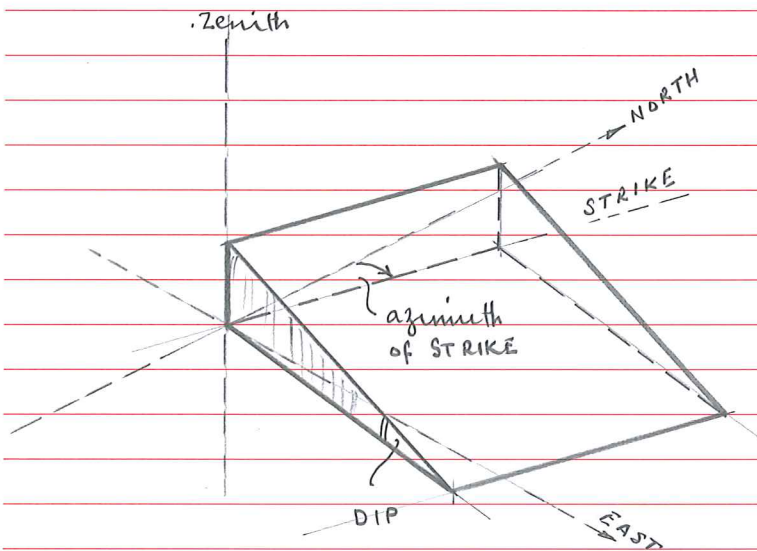 .Zenith
NORTH
STRIKE
azimuth
of STRIKE
DIP
EAST